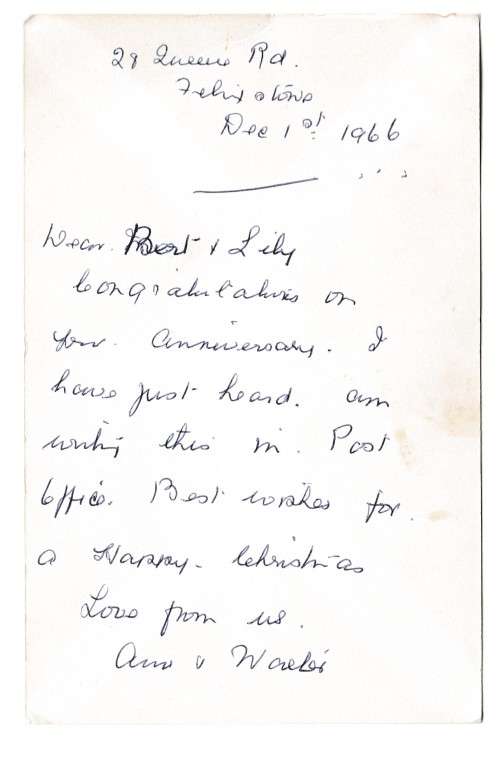 28 Queens Rd.
Felixstowe
Dec 1st 1966
Dear Bert & Lily
Congratulations on
your anniversary. I
have just heard. am
writing this in Post
Office. Best wishes for
a Happy Christmas
Love from us.
Ann & Walter